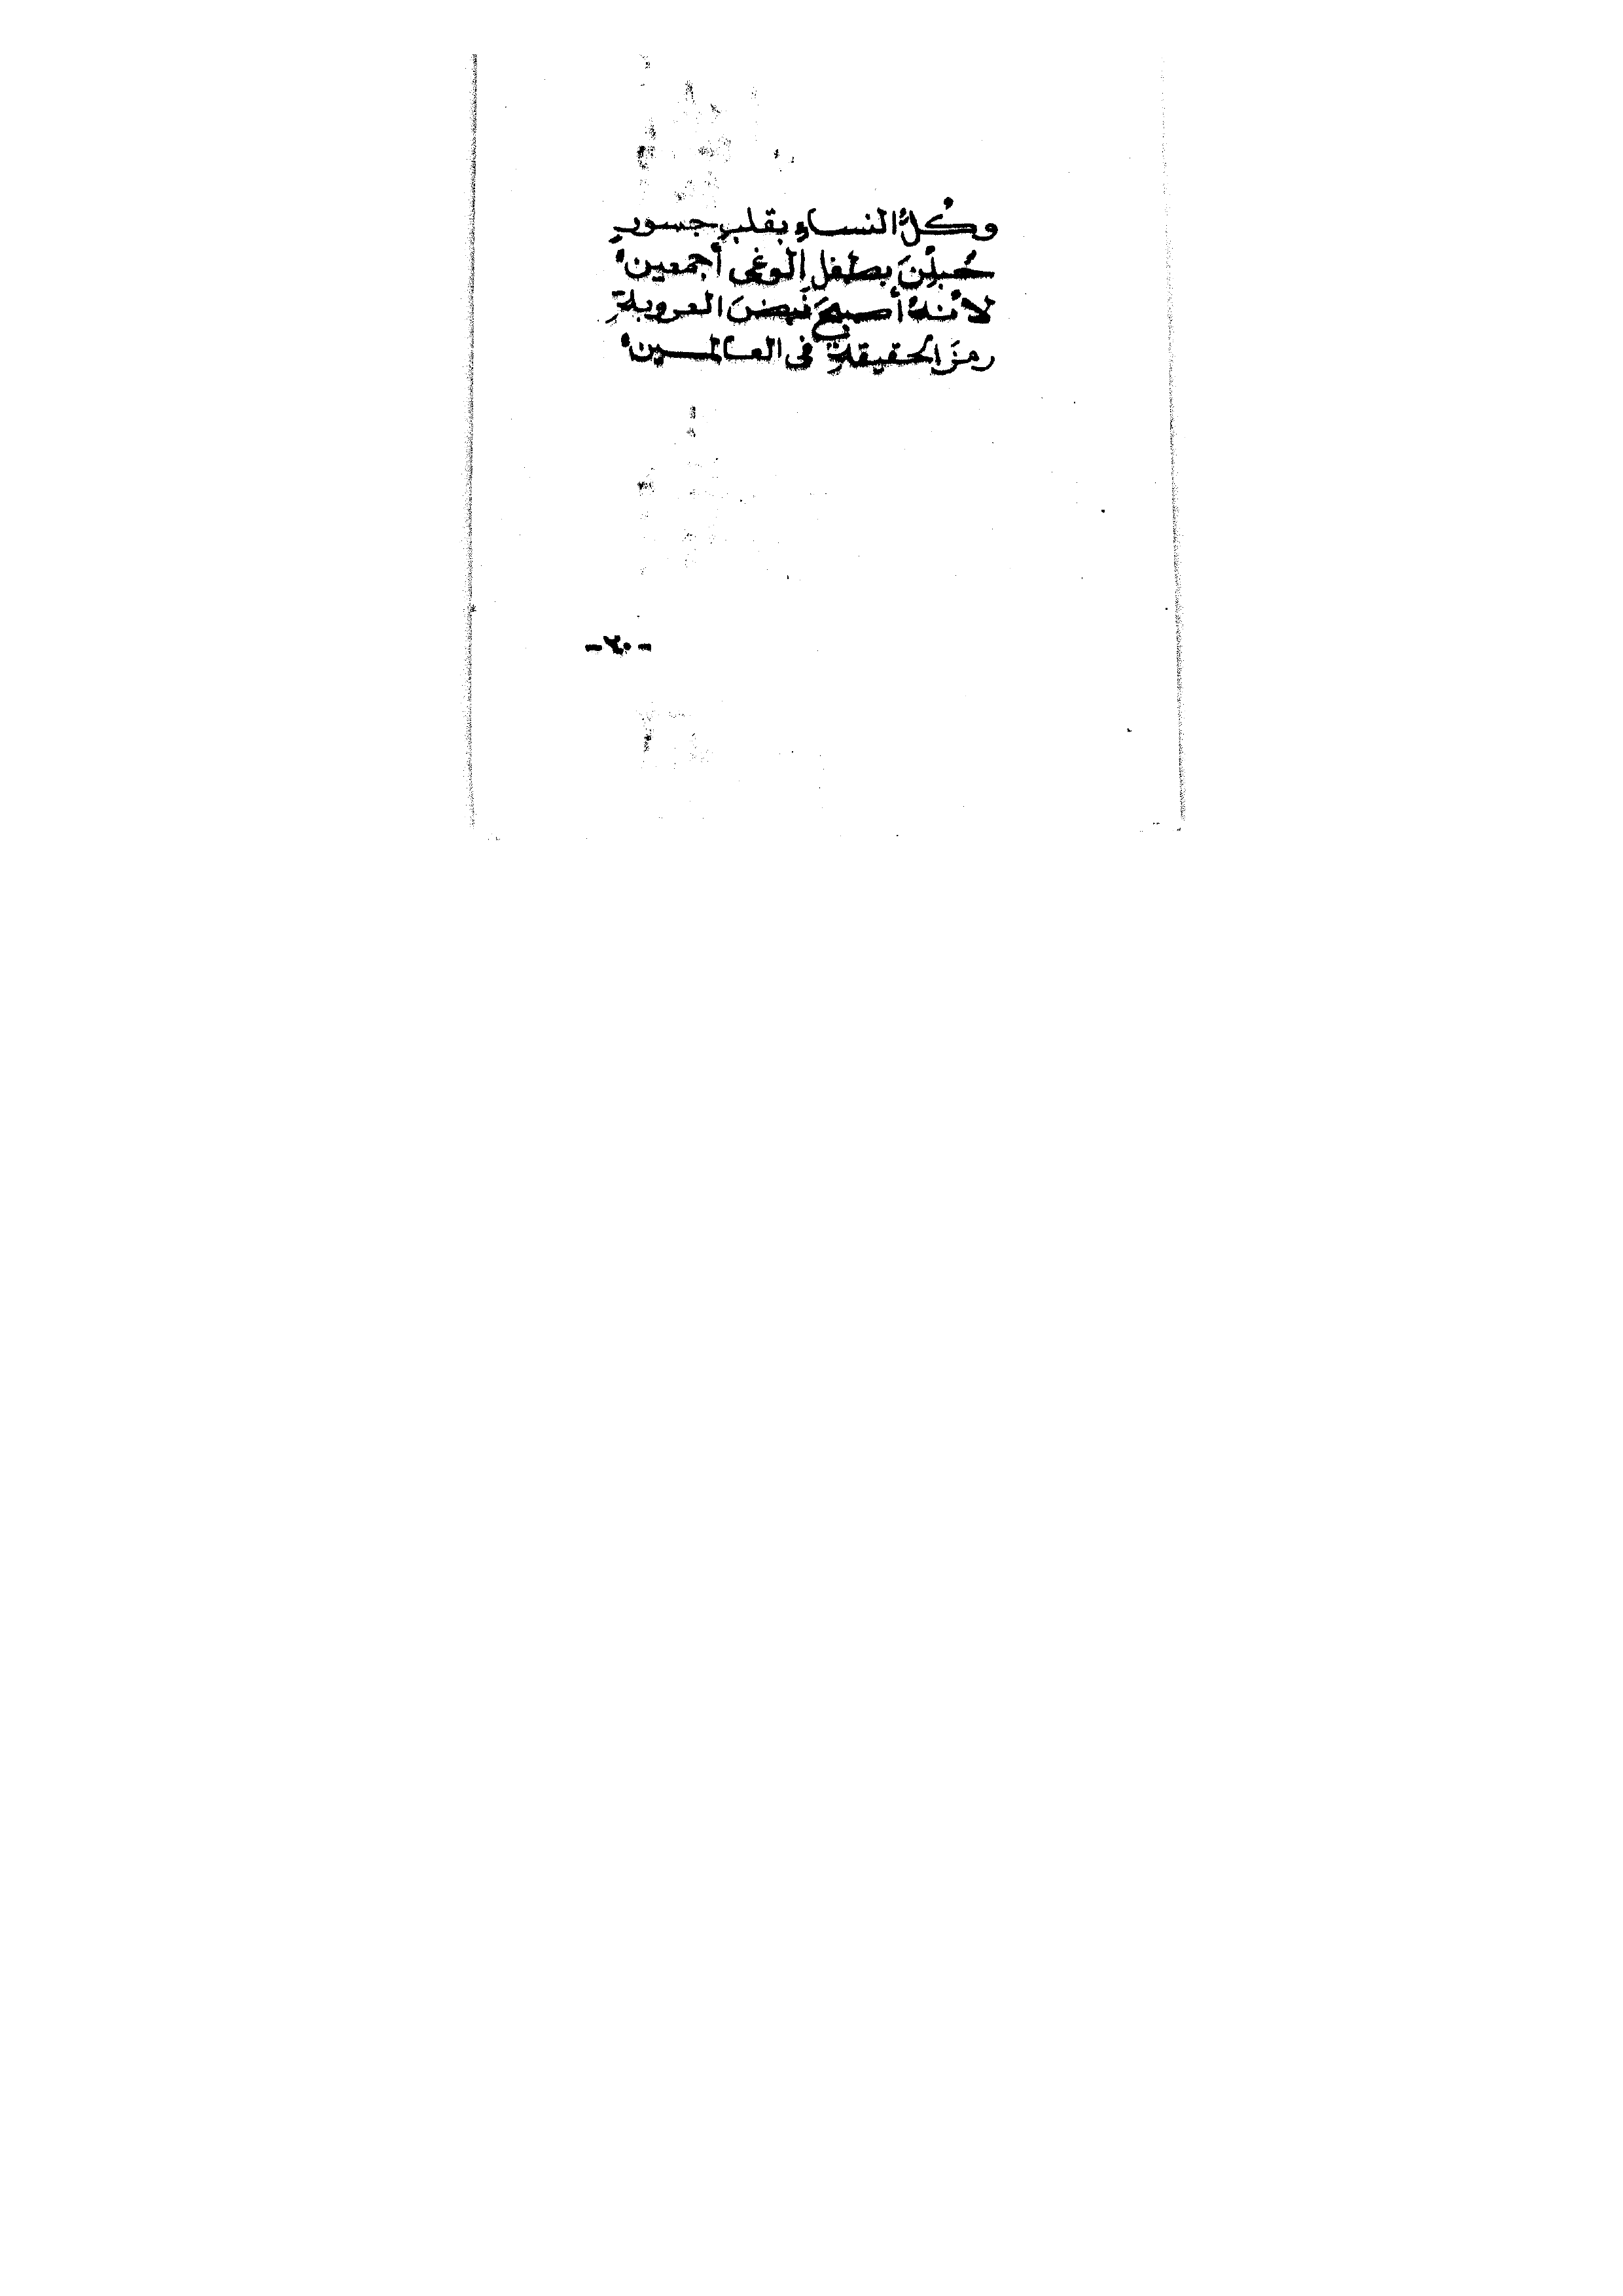 وكُلُّ النساءِ بقلبٍ جسورٍ
حُبلْنَ بطفلِ الوغى أجمعين
لأنهُ أصبحَ نبضَ العروبةِ
رمزَ الحقيقةِ فى العالمين
-٢٠-